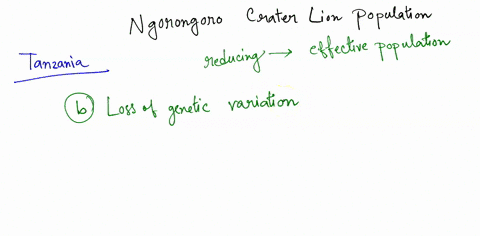 Ngorongoro Crater Lion Population
Tanzania
reducing → effective population
b Loss of genetic variation